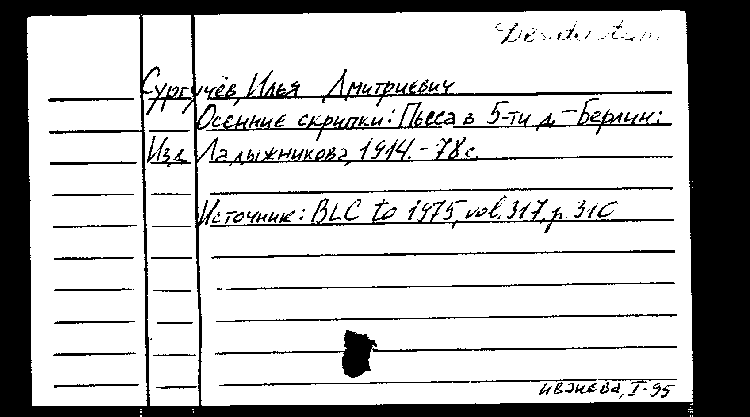 Desideratum
Сургучёв, Илья Дмитриевич
Осенние скрипки: Пьеса в 5-ти д. – Берлин:
Изд. Ладыжникова, 1914. – 78 с.
Источник: BLC to 1975, vol. 317, p. 310
Иванева, I-95